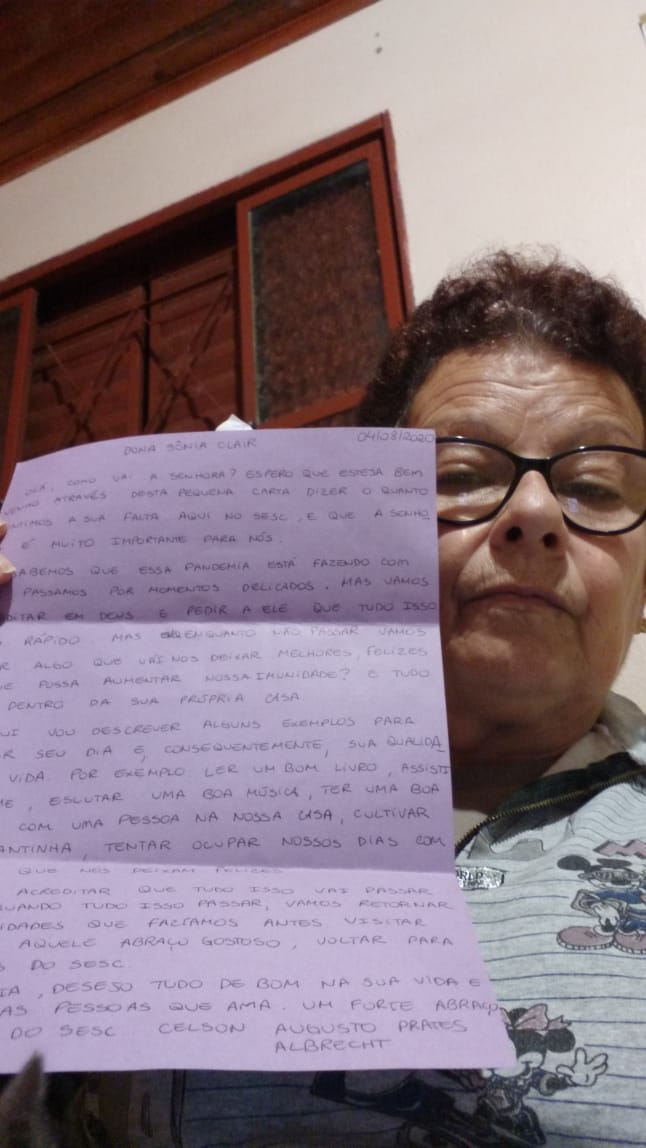 DONA SÔNIA CLAIR 04/08/2020
OLÁ, COMO VAI A SENHORA? ESPERO QUE ESTEJA BEM
VENHO ATRAVÉS DESTA PEQUENA CARTA DIZER O QUANTO
NTIMOS A SUA FALTA AQUI NO SESC, E QUE A SENHO
É MUITO IMPORTANTE PARA NÓS.
SABEMOS QUE ESSA PANDEMIA ESTÁ FAZENDO COM
PASSAMOS POR MOMENTOS DELICADOS. MAS VAMOS
DITAR EM DEUS E PEDIR A ELE QUE TUDO ISSO
RÁPIDO. MAS ENQUANTO NÃO PASSAR VAMOS
R ALGO QUE VAI NOS DEIXAR MELHORES, FELIZES
UE POSSA AUMENTAR NOSSA IMUNIDADE? E TUDO
DENTRO DA SUA PRÓPRIA CASA
UI VOU DESCREVER ALGUNS EXEMPLOS PARA
AR SEU DIA E, CONSEQUENTEMENTE, SUA QUALIDA
VIDA. POR EXEMPLO: LER UM BOM LIVRO, ASSISTI
ME, ESCUTAR UMA BOA MÚSICA, TER UMA BOA
COM UMA PESSOA NA NOSSA CASA, CULTIVAR
ANTINHA, TENTAR OCUPAR NOSSOS DIAS COM
QUE NOS DEIXAM FELIZES
ACREDITAR QUE TUDO ISSO VAI PASSAR
QUANDO TUDO ISSO PASSAR, VAMOS RETORNAR
IDADES QUE FAZÍAMOS ANTES VISITAR
AQUELE ABRAÇO GOSTOSO, VOLTAR PARA
S DO SESC.
IA, DESEJO TUDO DE BOM NA SUA VIDA E
AS PESSOAS QUE AMA. UM FORTE ABRAÇO
DO SESC CELSON AUGUSTO PRATES
ALBRECHT